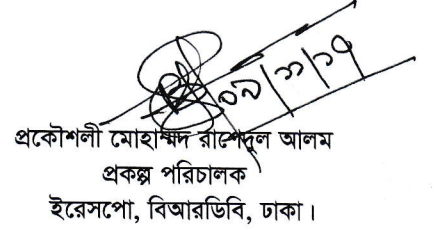 ০২/১১/১৭
প্রকৌশলী মোহাম্মদ রাশেদুল আলম
প্রকল্প পরিচালক
ইরেসপো, বিআরডিবি, ঢাকা।